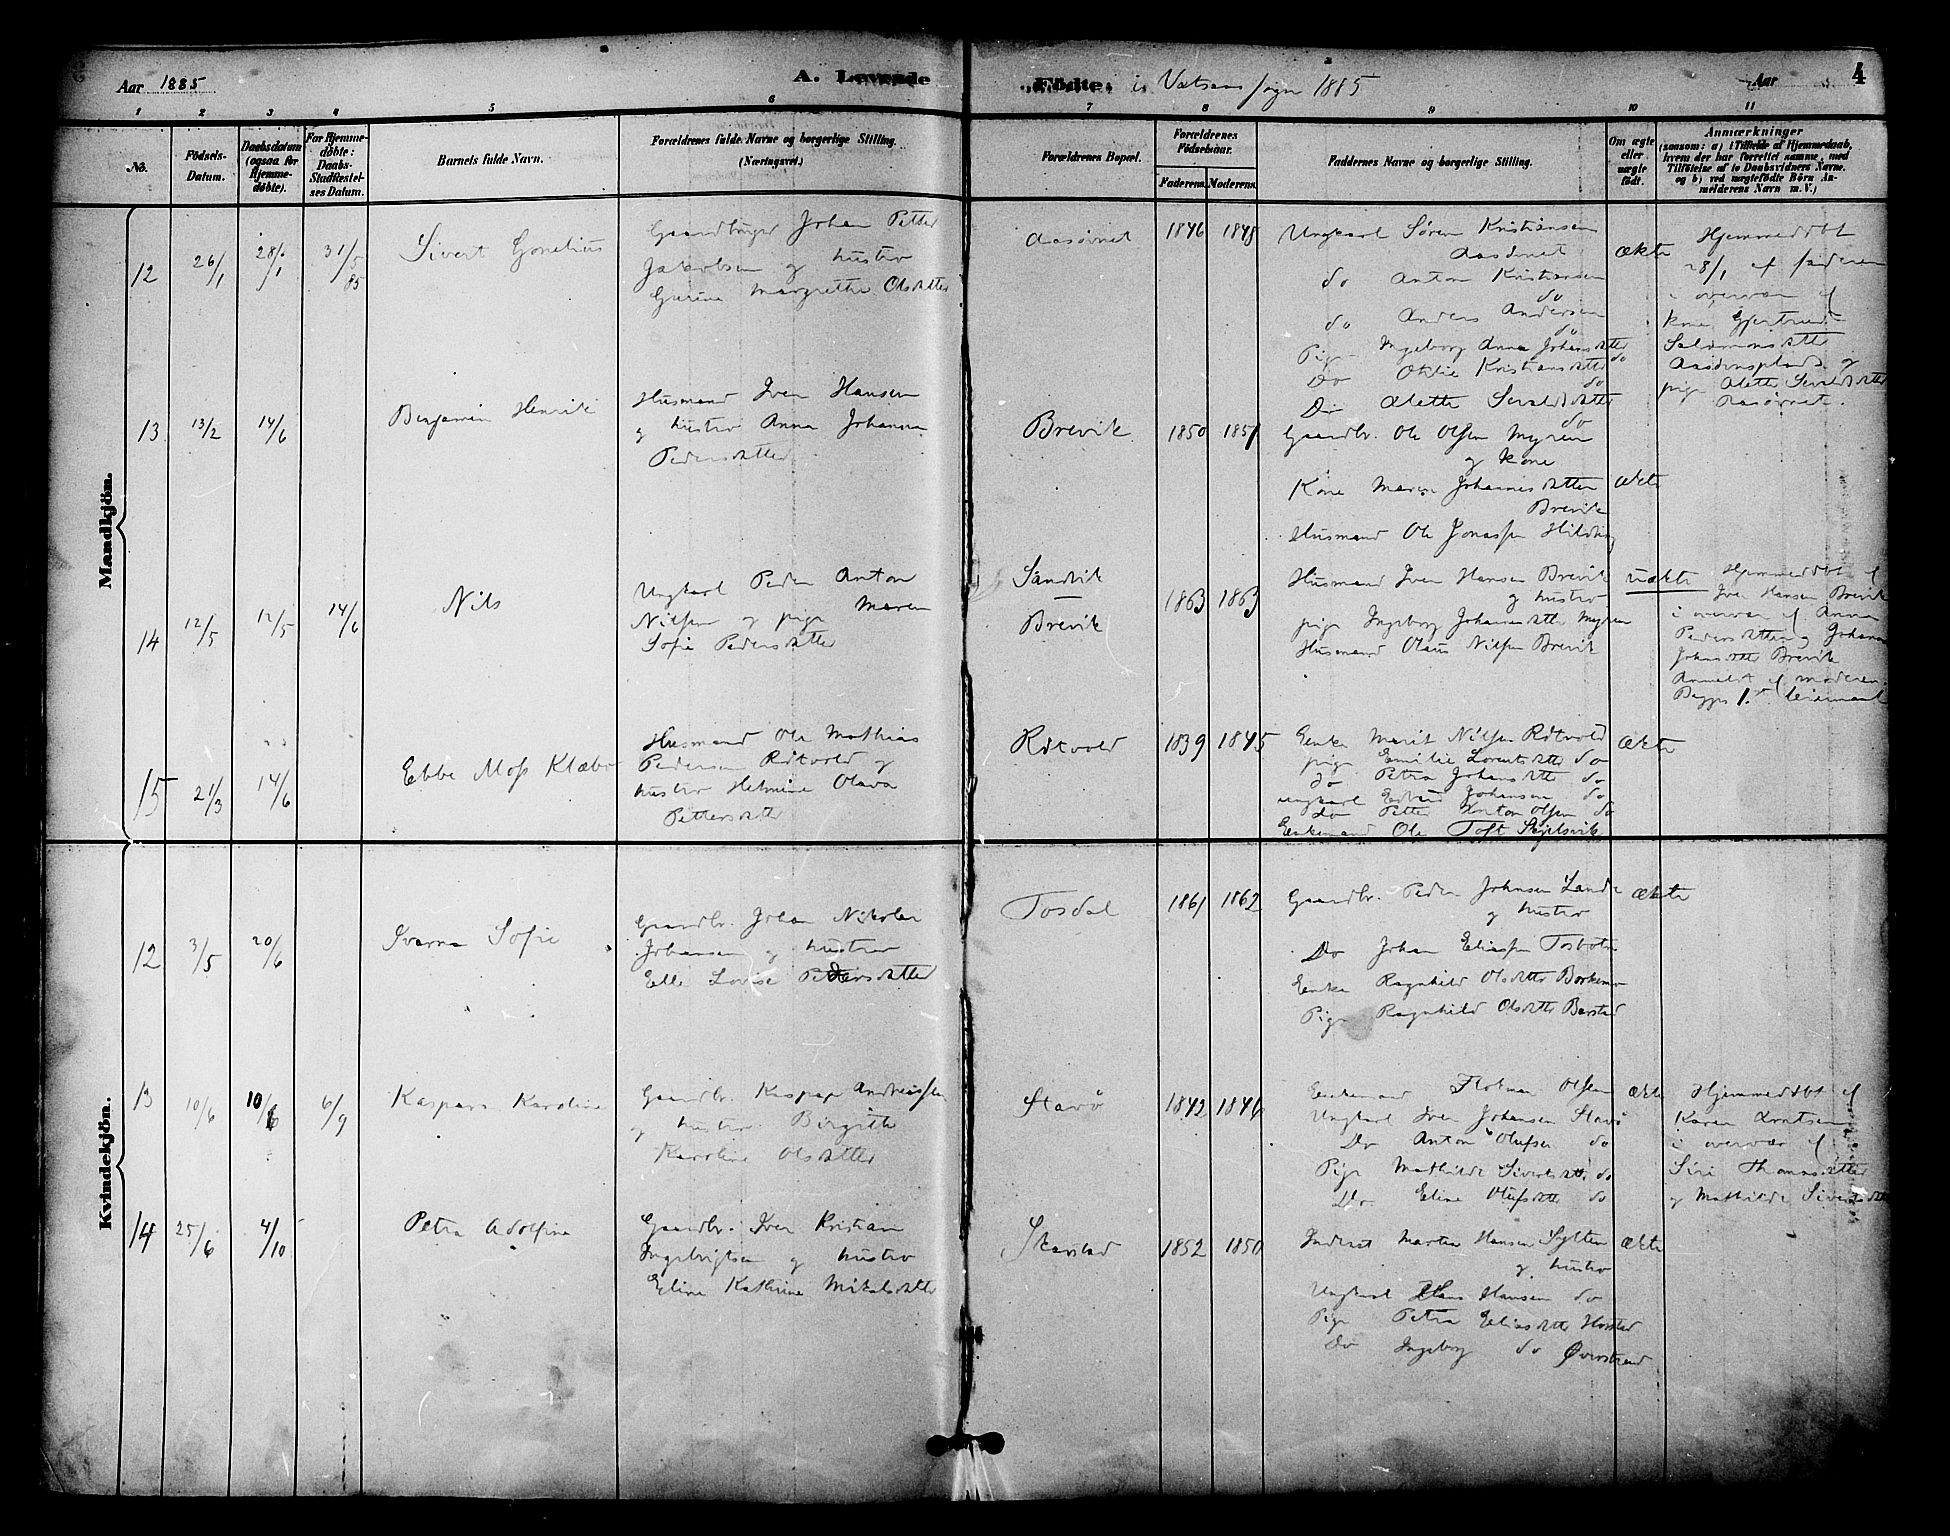 Aar 1885
A. Levende
Födte. i Vatsens sogn 1885
Aar
4
1 2 3 4 5 6 7 8 9 10 11
No.
Födsels-Datum.
Daabsdatum (ogsaa for Hjemmedøbte).
For Hjemmedøbte: Daabs-Stadfæstelses Datum.
Barnets fulde Navn.
Forældrenes fulde Navne og borgerlige Stilling.
(Næringsvei.)
Forældrenes Bopæl.
Forældrenes Födselsaar.
Faderens. Moderens.
Faddernes Navne og borgerlige Stilling.
Om ægte eller uægte født.
Anmærkninger
(saasom: a) i Tilfælde af Hjemmedaab,
hvem der har forrettet samme, med
Tilföielse af to Daabsvidners Navne.
og b) ved uægtefødte Börn An-
melderens Navn m. V.)
Mandkjön.
12 26/1 28/1 31/5 85
Sivert Gonelius
Gaardbruger Johan Petter
Jakobsen og hustro
Gurine Margrethe Olsdatter
Aasörnet
1846 1848
Ungkarl Sören Kristiansen
Aasörnet
do Anton Kristiansen
do
do Anders Andersen
do
Pige Ingeborg Anna Johansdatter
do
Do Otilie Kristiansdatter
do
Do Alette Sivaldsdatter
do
ækte
Hjemmedöbt
28/1 af faderen
i overvær af
kone Gjertrud
Salamonsdatter
Aasörnsplads og
pige Alette Sivaldsdatter
Aasörnet.
13 13/2 14/6
Benjamin Henrik
Husmand Iver Hansen
og hustro Anna Johanna
Pedersdatter
Brevik
1850 1851
Gaardbr. Ole Olsen Myren
og kone
Kone Maren Johannesdatter
Brevik
Husmand Ole Jonassen
ækte
14 12/5 12/5 14/6
Nils
Ungkarl Peder Anton
Nilsen og pige Maren
Sofie Pedersdatter
Sandvik
Brevik
1863 1863
Husmand Iver Hansen Brevik
og hustro
pige Ingeborg Johannesdatter Myren
Husmand Olaus Nilsen Brevik
uækte
Hjemmedöbt af
Iver Hansen Brevik
i overvær af Anna
Pedersdatter og Johanna
Johansdatter Brevik
Anmeldt af moderen.
Begges 1st leiermaal
15 21/3 14/6
Ebbe Moss Klæbo
Husmand Ole Mathias
Pedersen Rötvold og
hustro Helmine Olava
Pettersdatter
Rötvold
1839 1845
Enke Merit Nilsen Rötvold
pige Emilie Lorentsdatter do
do Petra Johansdatter do
ungkarl Edvard Johansen do
Do Petter Anton Olsen do
Enkemand Ole Toft
ækte
Kvindekjön.
12 3/5 20/6
Ivarna Sofie
Gaardbr. Johan Nikolai
Johansen og hustro
Elli Lovise Pedersdatter
Tosdal
1861 1862
Gaardbr. Peder Johnsen Lande
og hustro
Do Johan Eliassen Tosbotn
Enke Ragnhild Olsdatter Borkamo
Pige Ragnhild Olsdatter Barstad
ækte
13 10/6 10/6 6/9
Kaspara Karoline
Gaardbr. Kaspar Andreassen
og hustro Birgitte
Karoline Olsdatter
Stavö
1842 1846
Enkemand Flotman Olsen
Ungkarl Iver Johansen Stavö
Do Anton Olufsen do
Pige Mathilde Sivertsdatter do
Do Eline Olufsdatter do
ækte
Hjemmedöbt af
Karen Arntsen
i overvær af
Siri Thomasdatter
og Mathilde Sivertsdatter
14 25/6 4/10
Petra Adolfine
Gaardbr. Iver Kristian
Ingebrigtsen og hustro
Eline Kathrine Mikalsdatter
Skarstad
1852 1850
Inderst Martin Hansen Sylten
og hustro
Ungkarl Hans Hansen do
Pige Petra Eliasdatter Horstad
Do Ingeborg do Överstrand
ækte